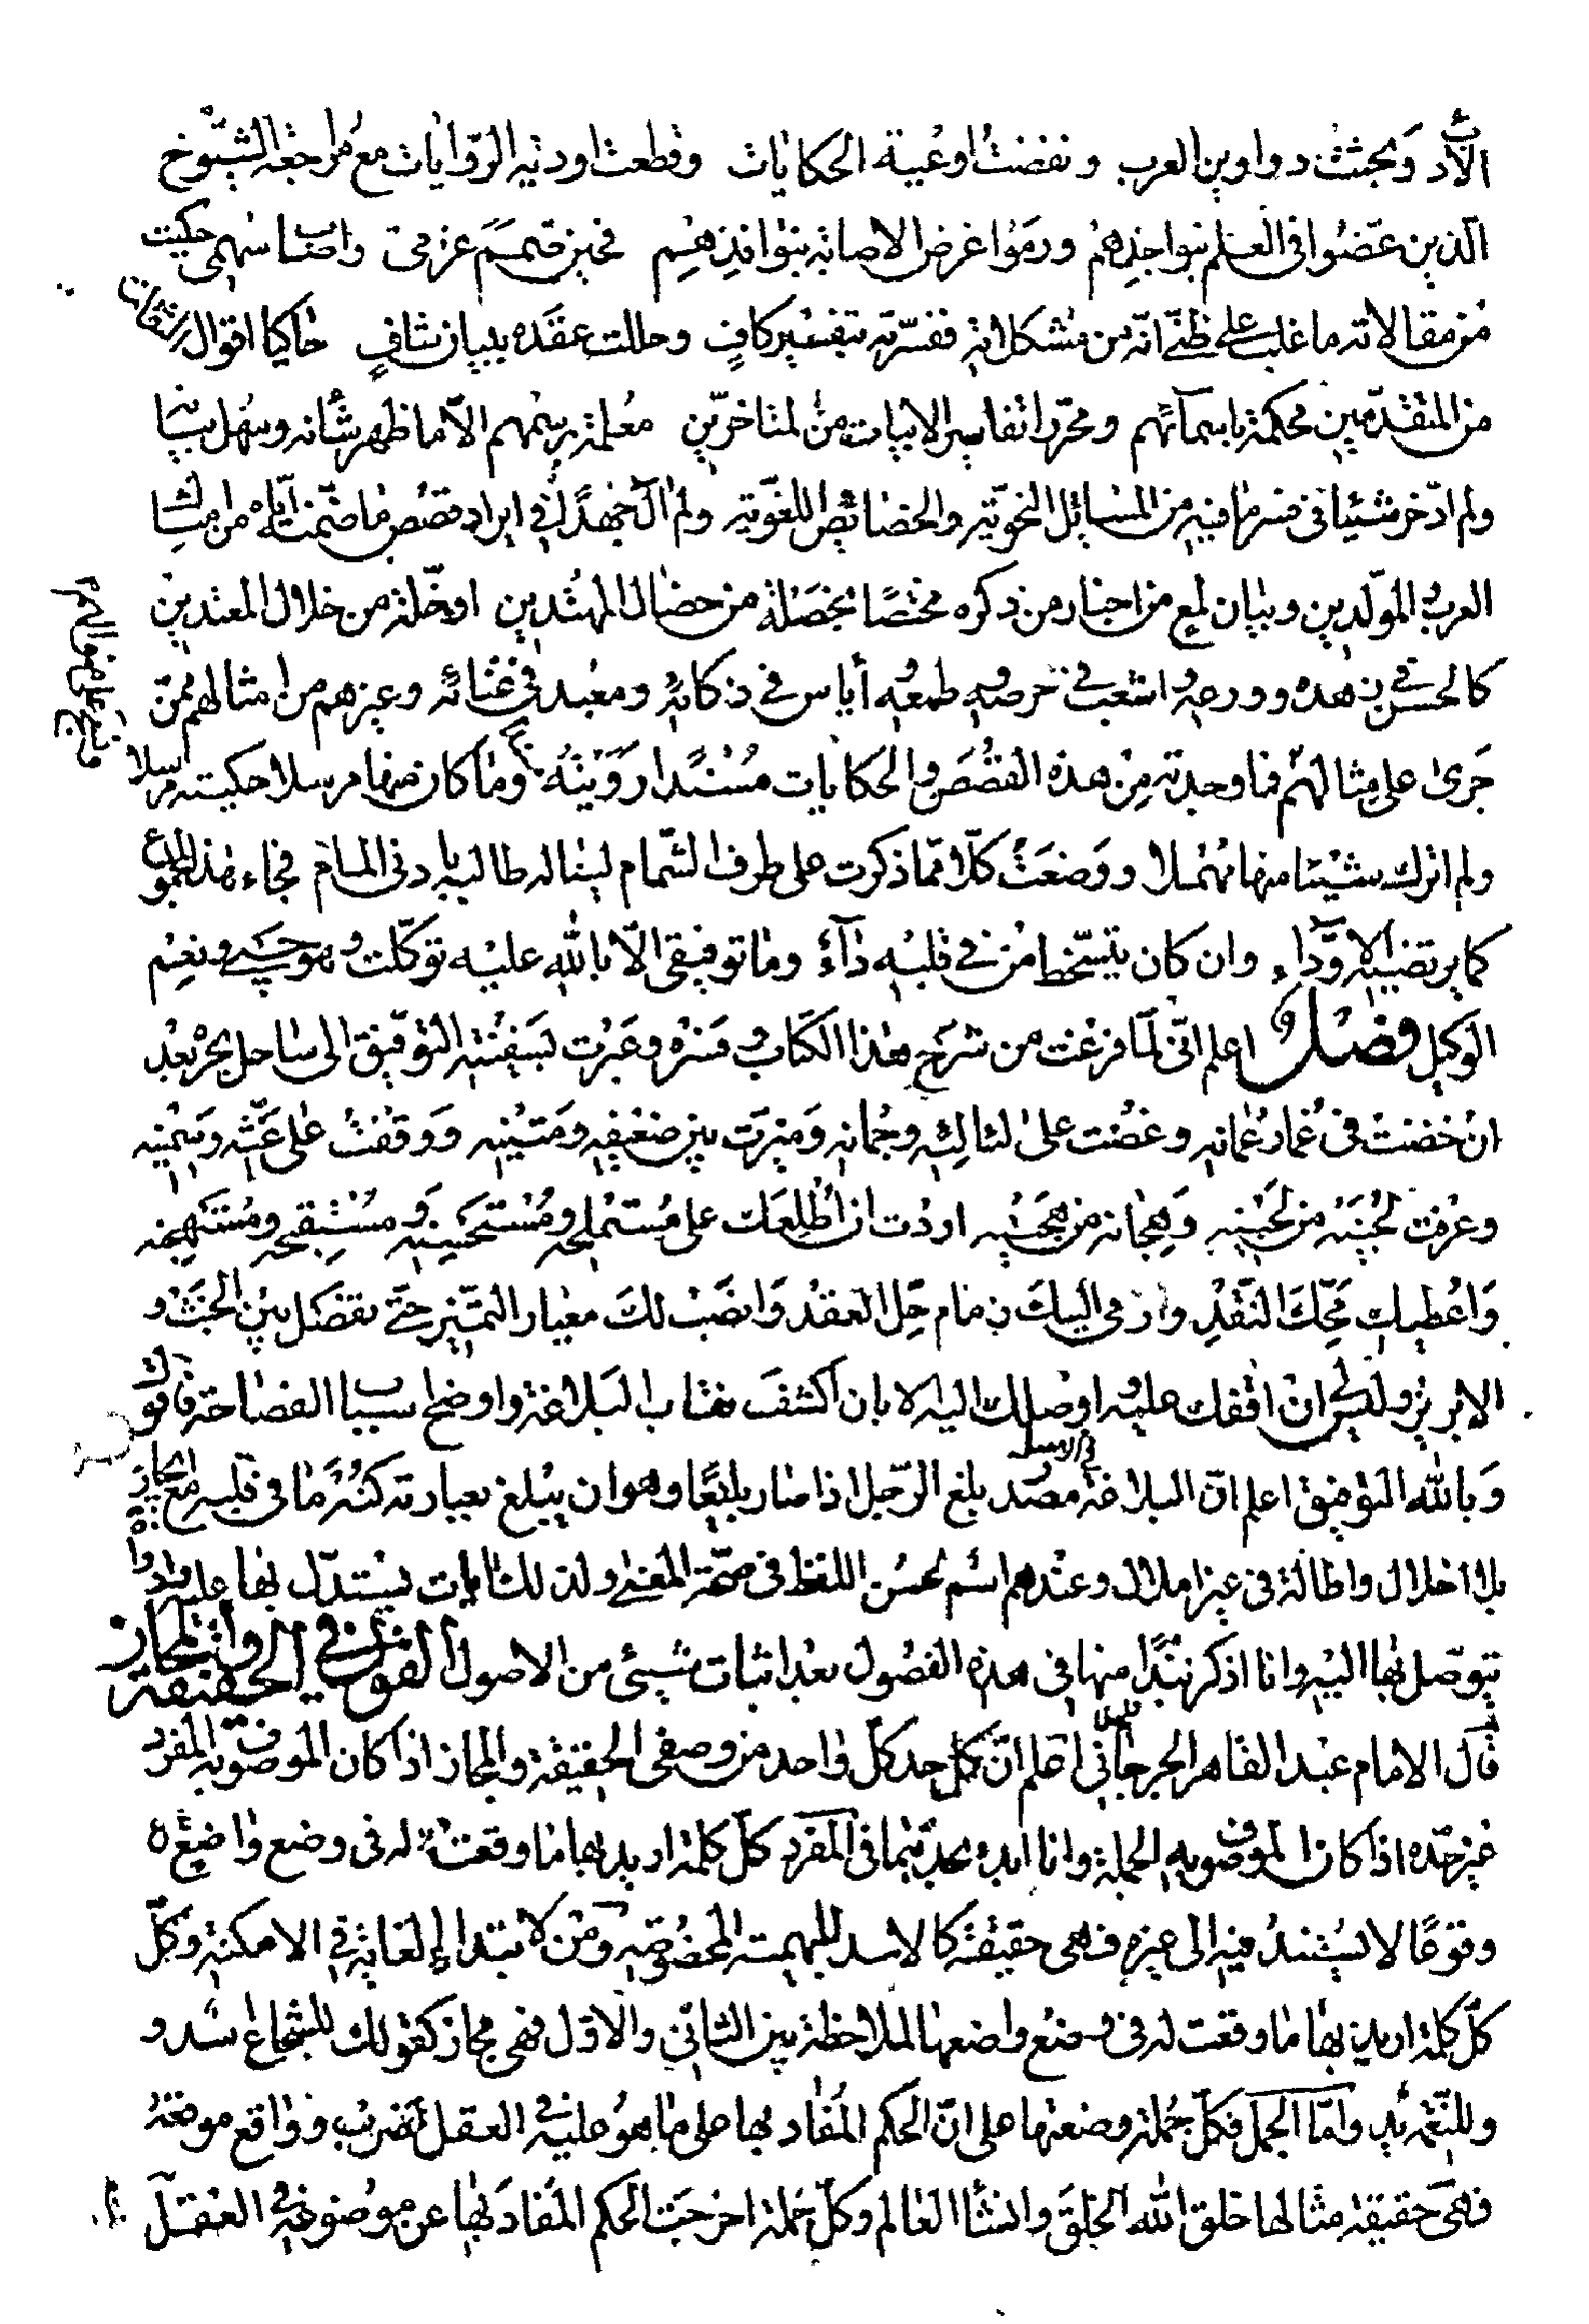 الأدب وبحثت دواوين العرب ونفضت اوعية الحكايات وقطعت اودية الروايات مع مراجعة الشيوخ
الذين عضّوا في العلم بنواجذهم ورموا غرض الاصابة بنوافذهم فحين صمّم عزمى واصاب سهمى حكيت
من مقالاته ما غلب على ظنّى انّه من مشكلاته ففسّرته بتفسير كافٍ وحللت عقده ببيان شافٍ حاكيا اقوال
من المتقدّمين محكمة باسمآئهم ومحرّرا تفاسير الابيات من المتاخرّين معلمة برسمهم الّا ما ظهر شأنه وسهل بيانه
ولم ادّخر شيئا في فسر ما فيه من المسائل النحويّه والخصائص اللغويّه ولم آل جهدًا في ايراد قصص ما ضمّنت اياه من امثال
العرب والمولّدين وبيان لمع من اخبار من ذكره مختصّا بخصلة من خصال المهتدين او خلّة من خلال المعتدين
كالحسن في زهده وورعه واشعب في حرصه وطمعه أياس في ذكائه ومعبد في غنائه وغيرهم من امثالهم ممّن
جرى على مثالهم فما وجدته من هذه القصص والحكايات مسندًا رويته وما كان منها مرسلا حكيته مرسلا
ولم اترك شيئا منها مهملا ووضعت كلّا ممّا ذكرت على طرف الثمام ليناله طالبه بادنى المام فجاء هذا المجموع
كما يرتضيه الاودّاء وان كان يتسخّط من في قلبه دآء وما توفيقى الّا بالله عليه توكّلت وهو حسبى ونعم
الوكيل فصل اعلم انّى لمّا فرغت من شرح هذا الكتاب وفسره وعبرت بسفينة التوفيق الى ساحل بحره بعد
ان خضت في غمار عمانه وغصت على لئاليه وجمانه وميزت بين ضعيفه ومتينه ووقفت على غثّه وسمينه
وعرفت لجينه من لجينه وهجانه من هجينه اردت ان اطلعك على مستملحه ومستحسنه ومستقبحه ومستهجنه
واعطيك محكّ النقد وارمى اليك زمام حلّ العقد وانصب لك معيار التمييز حتى تفصل بين الخبث و
الابريز وليس لى ان اقفك عليه او اوصلك اليه الا بان اكشف نقاب البلاغة واوضح اسباب الفصاحة فاقول
وبالله التوفيق اعلم انّ البلاغة في الاصل مصدر بلغ الرجل اذا صار بليغًا وهو ان يبلغ بعبارته كنه ما في قلبه مع ايجاز
بلا اخلال واطالة في غير املال وعندهم اسم لحسن اللفظ في صحّة المعنى ولذلك امارات يستدلّ بها عليه وادوات
يتوصّل بها اليه وانا اذكر نبذًا منها في هذه الفصول بعد اثبات شيئ من الاصول القول في الحقيقة والمجاز
قال الامام عبد القاهر الجرجانى اعلم انّ حد كلّ واحد من وصفى الحقيقة والمجاز اذا كان الموصوف به المفرد
غير حدّه اذا كان الموصوف به الجملة وانا ابدء بحدّهما في المفرد كلّ كلمة اريد بها ما وقعت له في وضع واضع
وقوعًا لا يستند فيه الى غيره فهى حقيقة كالاسد للبهيمة المخصوصة ومن لابتداء الغاية في الامكنة وكلّ
كلّ كلمة اريد بها ما وقعت له في وضع واضعها لملاحظة بين الثانى والاول فهى مجاز كقولك للشجاع اسد و
وامّا الجمل فكلّ جملة وضعتها على انّ الحكم المفاد بها على ما هو عليه في العقل وواقع موقعه
فهى حقيقة مثالها خلق الله الخلق وانشأ العالم وكلّ جملة اخرجت الحكم المفاد بها عن موضوعه في العقل